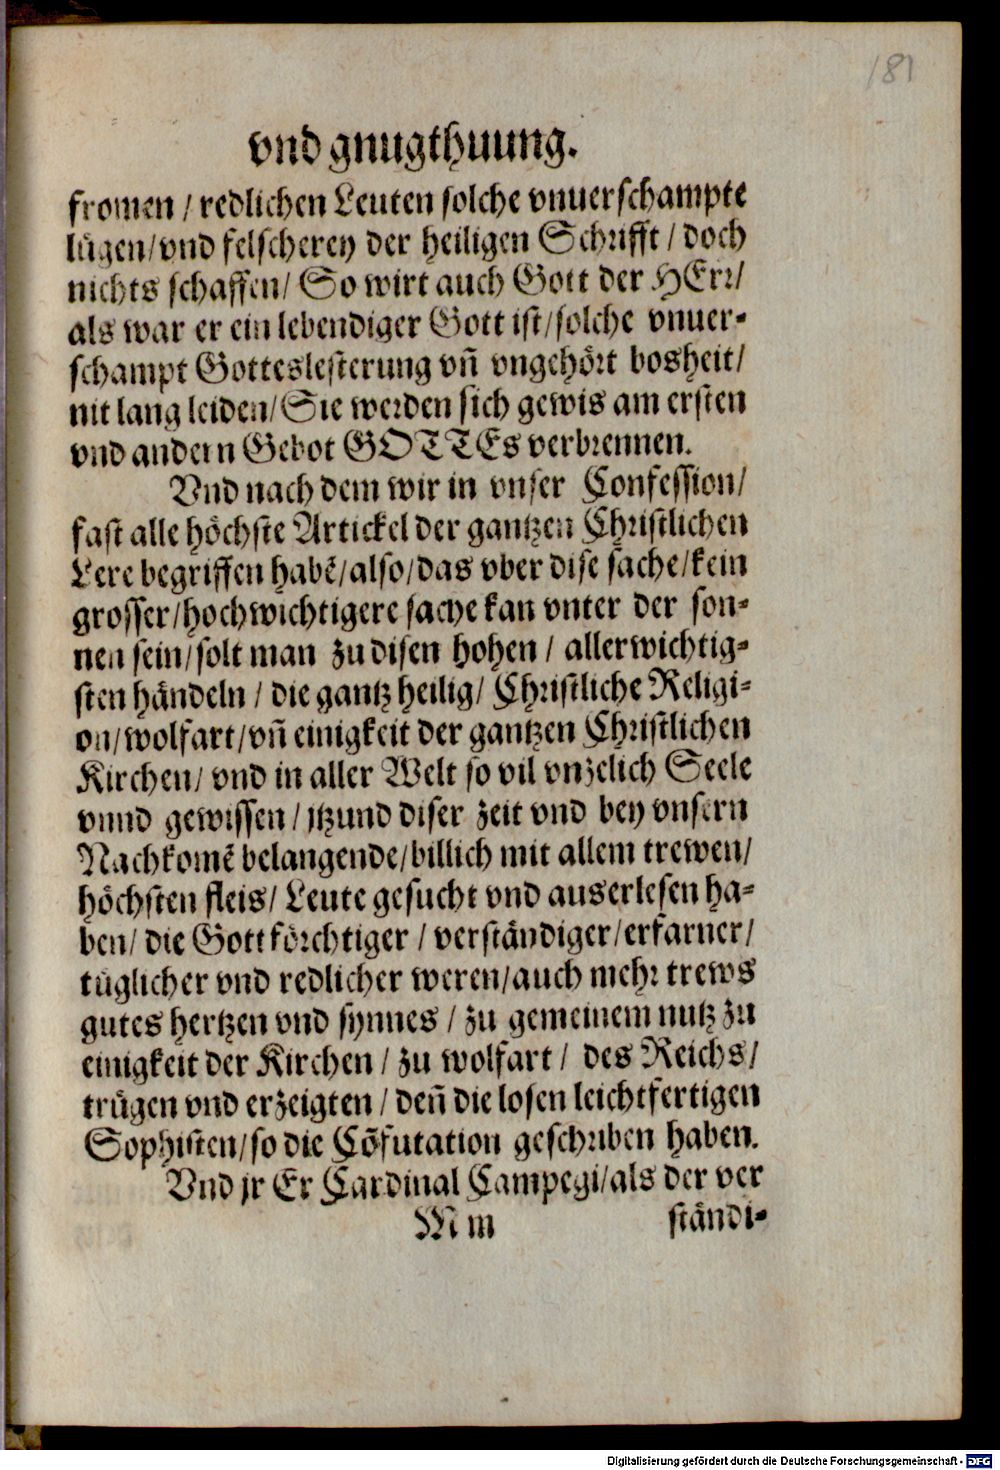 181
vnd gnugthuung.
fromen / redlichen Leuten solche vnuerschampte
lügen/vnd felscherey der heiligen Schrifft / doch
nichts schaffen/ So wirt auch Gott der HErr/
als war er ein lebendiger Gott ist/solche vnuer-
schampt Gotteslesterung vñ vngehört bosheit/
nit lang leiden/Sie werden sich gewis am ersten
vnd andern Gebot GOTTEs verbrennen.
Vnd nach dem wir in vnser Confession/
fast alle höchste Artickel der gantzen Christlichen
Lere begriffen habẽ/also/das vber dise sache/kein
grosser/hochwichtigere sache kan vnter der son-
nen sein/solt man zu disen hohen / allerwichtig-
sten händeln / die gantz heilig/ Christliche Religi-
on/wolfart/vñ einigkeit der gantzen Christlichen
Kirchen/ vnd in aller Welt so vil vnzelich Seele
vnnd gewissen / jtzund diser zeit vnd bey vnsern
Nachkomẽ belangende/billich mit allem trewen/
höchsten fleis/ Leute gesucht vnd auserlesen ha-
ben/ die Gottförchtiger / verständiger/erfarner/
tüglicher vnd redlicher weren/auch mehr trews
gutes hertzen vnd synnes / zu gemeinem nutz zu
einigkeit der Kirchen / zu wolfart / des Reichs/
trügen vnd erzeigten / deñ die losen leichtfertigen
Sophisten/so die Cõfutation geschriben haben.
Vnd jr Er Cardinal Campegi/als der ver
M m ständi-
Digitalisierung gefördert durch die Deutsche Forschungsgemeinschaft - DFG